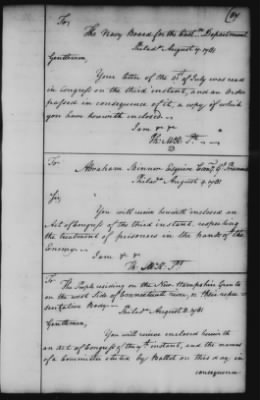 To,
The Navy Board for the East.rn Department
Philad.a August 9. 1781
Gentlemen,
Your letter of the of July was read
in Congress on the third instant, and an Order
passed in consequence of it, a copy of which
you have herewith enclosed. –
I am &c &c
Tho. McK. P.t
To Abraham Skinner Esquire Com.y G.l Prisoners
Philad.a August 9. 1781
Sir,
You will receive herewith enclosed an
Act of Congress of the third instant, respecting
the treatment of prisoners in the hands of the
Enemy. –
I am &c &c
Tho. McK. P.t
To The People residing on the New Hampshire Grants
on the west Side of Connecticut river, or their repre-
sentative Body. –
Philad.a August 8. 1781
Gentlemen,
You will receive enclosed herewith
an Act of Congress of the 7th instant, and the names
of a Committee elected by Ballot on this day in
consequence